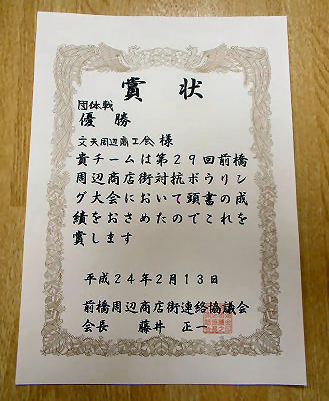 賞状
団体戦
優勝
文天周辺商工会 様
貴チームは第29回前橋
周辺商店街対抗ボウリン
グ大会において頭書の成
績をおさめたのでこれを
賞します
平成24年2月13日
前橋周辺商店街連絡協議会
会長 藤井 正一